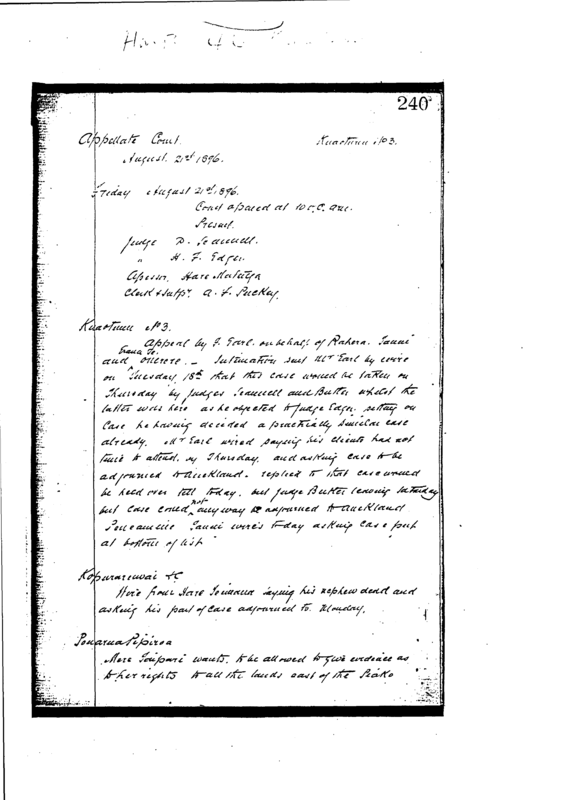 240
Appellate Court Kuaotunu No 3.
August 21st 1896.
Friday August 21st, 1896.
Court opened at 10 o.c. am.
Present.
Judge D. Scannell.
" H. F. Edger.
Assessor Hare
Clerk & A. F. Puckey.
Kuaotunu No 3.
Appeal by F. Earl. on behalf of Rahera. Tanui
and - Intimation sent Mr Earl by wire
on Tuesday 18th that this case would be taken on
Thursday by Judges Scannell and Butler whilst the
latter was here as he objected to Judge Edger sitting on
Case he having decided a practically similar case
already. Mr Earl wired saying his clients had not
time to attend. by Thursday. and asking case to be
adjourned to Auckland. replied to that case would
be held over till today. but Judge Butler leaving Saturday
but case could not any way be adjourned to Auckland
Tanui wires today asking case put
at bottom of list
&c
Wire from Hare saying his nephew dead and
asking his part of case adjourned to Monday.
Pipiroa
Mere wants to be allowed to give evidence as
to her rights to all the lands east of the Piako